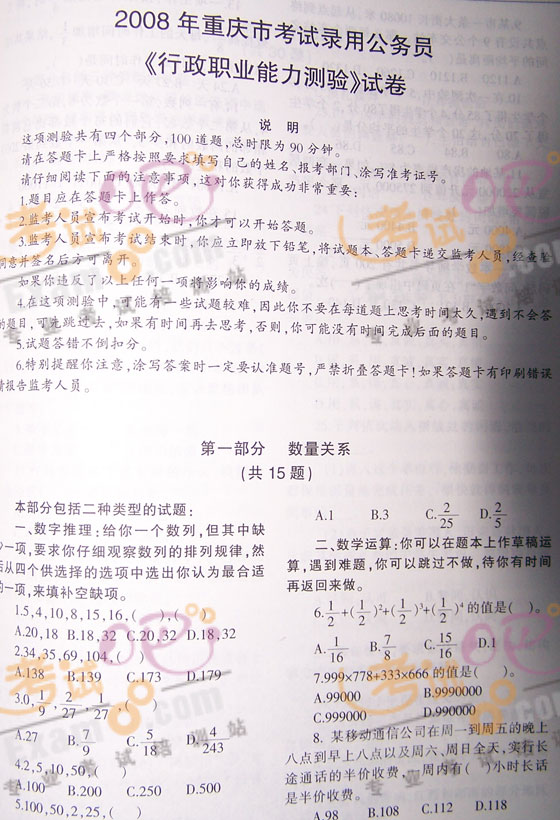 2008年重庆市考试录用公务员
《行政职业能力测验》试卷
说 明
这项测验共有四个部分,100道题,总时限为90分钟。
请在答题卡上严格按照要求填写自己的姓名、报考部门、涂写准考证号。
请仔细阅读下面的注意事项,这对你获得成功非常重要:
1.题目应在答题卡上作答。
2.监考人员宣布考试开始时,你才可以开始答题。
3.监考人员宣布考试结束时,你应立即放下铅笔,将试题本、答题卡递交监考人员,经查
同意并签名后方可离开。
如果你违反了以上任何一项将影响你的成绩。
4.在这项测验中,可能有一些试题较难,因此你不要在每道题上思考时间太久,遇到不会答
的题目,可先跳过去,如果有时间再去思考,否则,你可能没有时间完成后面的题目。
5.试题答错不倒扣分。
6.特别提醒你注意,涂写答案时一定要认准题号,严禁折叠答题卡!如果答题卡有印刷错误
请报告监考人员。
第一部分 数量关系
(共15题)
本部分包括二种类型的试题:
一、数字推理:给你一个数列,但其中缺
少一项,要求你仔细观察数列的排列规律,然
后从四个供选择的选项中选出你认为最合适
的一项,来填补空缺项。
1.5,4,10,8,15,16,( ),( )
A.20,18 B.18,32 C.20,32 D.18,32
2.34,35,69,104,( )
A.138 B.139 C.173 D.179
3.0,1/9,2/27,1/27,( )
A.27 B.7/9 C.5/18 D.4/243
4.2,5,10,50,( )
A.100 B.200 C.250 D.500
5.100,50,2,25,( )
A.1 B.3 C.2/25 D.2/5
二、数学运算:你可以在题本上作草稿运
算,遇到难题,你可以跳过不做,待你有时间
再返回来做。
6.1/2+(1/2)²+(1/2)³+(1/2)⁴的值是( )。
A.1/16 B.7/8 C.15/16 D.1
7.999×778+333×666的值是( )。
A.99000 B.9990000
C.999000 D.990000
8. 某移动通信公司在周一到周五的晚上
八点到早上八点以及周六、周日全天,实行长
途通话的半价收费,一周内有( )小时长话
是半价收费。
A.98 B.108 C.112 D.118
考试吧
Exam8.com
专业考试培训站